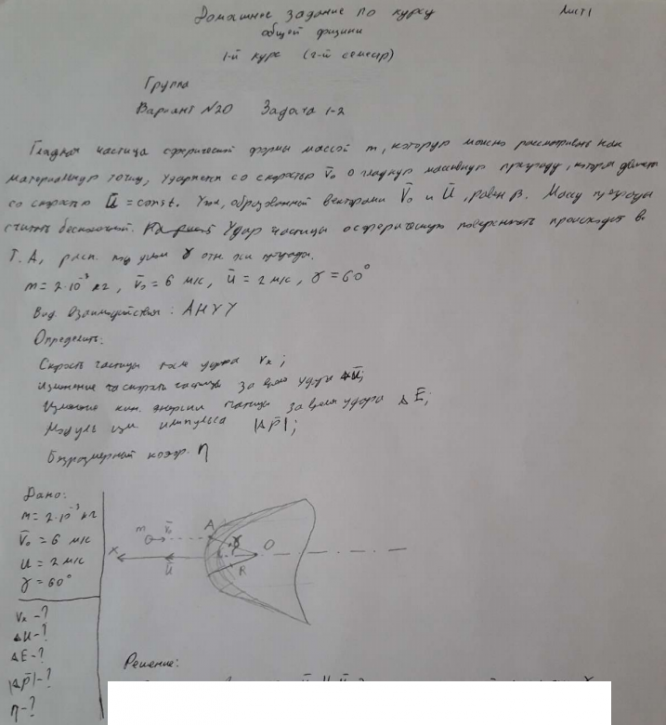 Домашнее задание по курсу Лист 1
общей физики
1-й курс (2-й семестр)
Группа
Вариант №20 Задача 1-2
Гладкая частица сферической формы массой m, которую можно рассматривать как
материальную точку, ударяется со скоростью V̄₀ о гладкую массивную преграду, которая движется
со скоростью Ū = const. Угол, образованный векторами V̄₀ и Ū, равен β. Массу преграды
считать бесконечной. Удар частицы о сферическую поверхность происходит в
т. А, расп. под углом γ отн. оси преграды.
m = 2·10⁻³ кг, V̄₀ = 6 м/с, ū = 2 м/с, γ = 60°
Вид взаимодействия: АНУУ
Определить:
Скорость частицы посл удара Vк;
Изменение скорости частицы за время удара
Изменение кин. энергии частицы за время удара ΔE;
Модуль изм импульса |Δp̄|;
Безразмерный коэф. η
Дано:
m = 2·10⁻³ кг
V̄₀ = 6 м/с
u = 2 м/с
γ = 60°
m V̄₀ A γ O
X ū R
Vк - ?
Δu - ?
ΔE - ?
|Δp̄| - ?
η - ?
Решение: